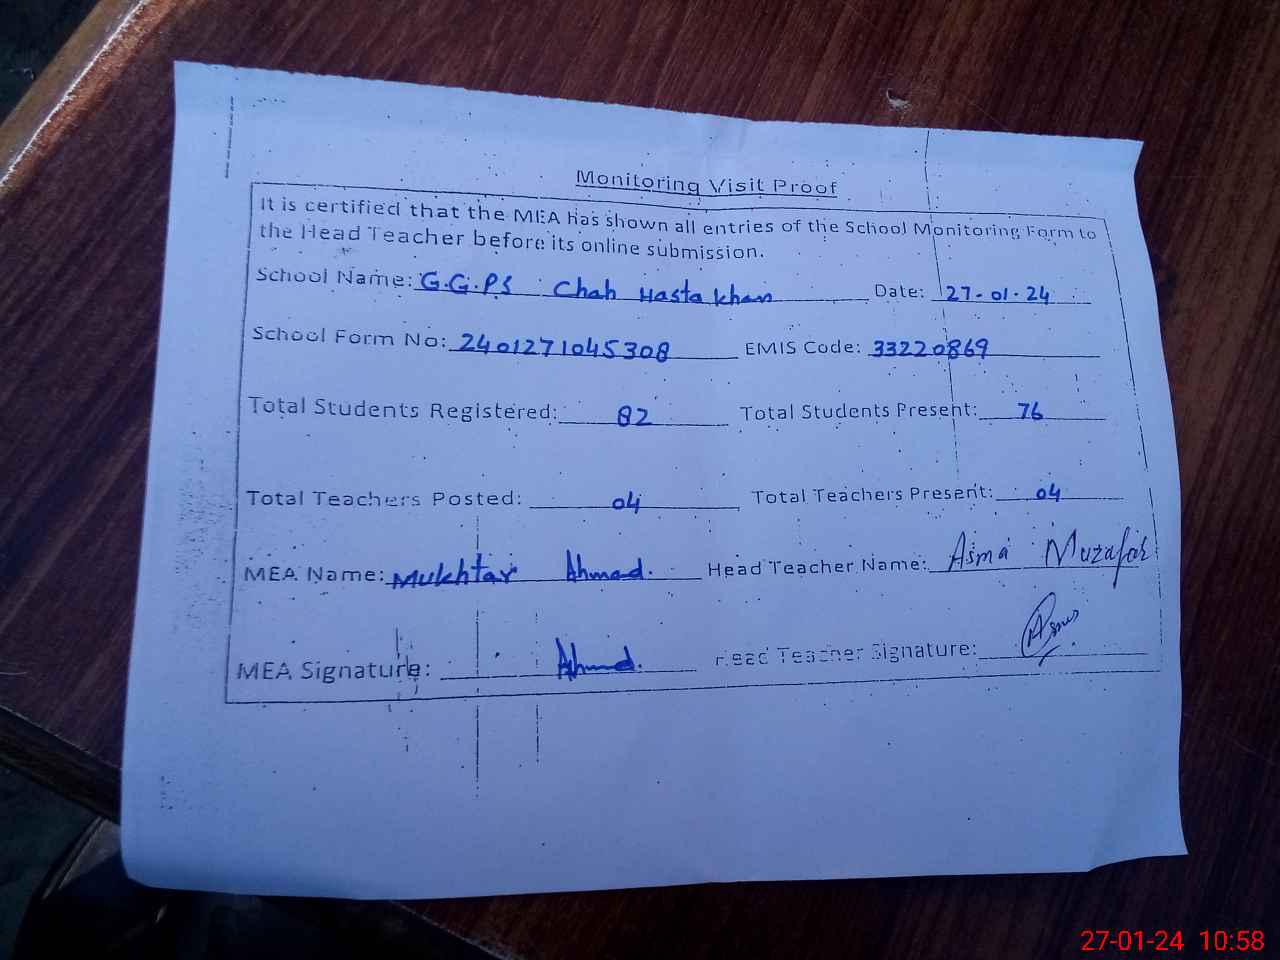 Monitoring Visit Proof
It is certified that the MEA has shown all entries of the School Monitoring Form to
the Head Teacher before its online submission.
School Name: G.G.P.S Chah Hasta khan Date: 27-01-24
School Form No: 2401271045308 EMIS Code: 33220869
Total Students Registered: 82 Total Students Present: 76
Total Teachers Posted: 04 Total Teachers Present: 04
MEA Name: Mukhtar Ahmad. Head Teacher Name: Asma Muzafar
MEA Signature: Ahmad. Head Teacher Signature: Asma
27-01-24 10:58